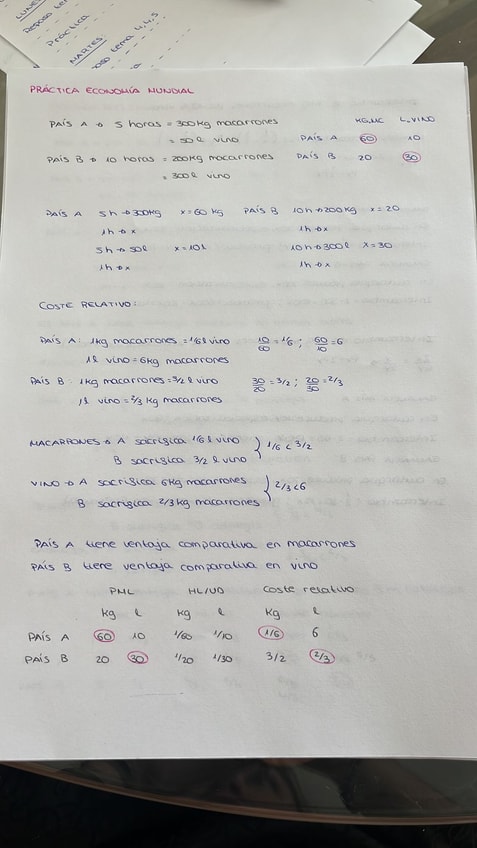 LUNES
Repaso
Práctica
MARTES
tema 4,4,5
PRÁCTICA ECONOMÍA MUNDIAL
PAÍS A → 5 horas = 300kg macarrones
= 50 l vino
PAÍS B → 10 horas = 200kg macarrones
= 300 l vino
KG.MC L.VINO
PAÍS A 60 10
PAÍS B 20 30
PAÍS A 5h → 300kg x = 60 kg PAÍS B 10h → 200kg x = 20
1h → x 1h → x
5h → 50l x = 10 l 10h → 300 l x = 30
1h → x 1h → x
COSTE RELATIVO:
PAÍS A: 1kg macarrones = 1/6 l vino 10/60 = 1/6 ; 60/10 = 6
1 l vino = 6kg macarrones
PAÍS B: 1kg macarrones = 3/2 l vino 30/20 = 3/2 ; 20/30 = 2/3
1 l vino = 2/3 kg macarrones
MACARRONES → A sacrifica 1/6 l vino
B sacrifica 3/2 l vino } 1/6 < 3/2
VINO → A sacrifica 6kg macarrones
B sacrifica 2/3 kg macarrones } 2/3 < 6
PAÍS A tiene ventaja comparativa en macarrones
PAÍS B tiene ventaja comparativa en vino
PML HL/UD Coste relativo
kg l kg l kg l
PAÍS A 60 10 1/60 1/10 1/6 6
PAÍS B 20 30 1/20 1/30 3/2 2/3